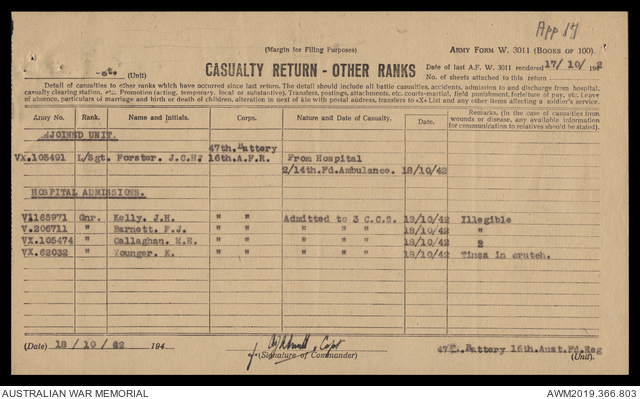 App 17
(Margin for Filing Purposes)
ARMY FORM W. 3011 (BOOKS OF 100).
(Unit)
CASUALTY RETURN - OTHER RANKS
Date of last A.F. W. 3011 rendered 17/10/1942
No. of sheets attached to this return
Detail of casualties to other ranks which have occurred since last return. The detail should include all battle casualties, accidents, admission and discharge from hospital,
casualty clearing station, etc. Promotion (acting, temporary, local or substantive). Transfers, postings, attachments, etc. courts-martial, field punishment, forfeiture of pay, etc. Leave
of absence, particulars of marriage and birth or death of children, alteration in next of kin with postal address, transfers to «X» List and any other items affecting a soldier's service.
Army No. Rank. Name and Initials. Corps. Nature and Date of Casualty. Date. Remarks. (In the case of casualties from wounds or disease, any available information for communication to relatives should be stated).
REJOINED UNIT.
47th. Battery
VX.105491 L/Sgt. Forster. J.C.H. 16th.A.F.R. From Hospital
2/14th.Fd.Ambulance. 18/10/42
HOSPITAL ADMISSIONS.
VX165971 Gnr. Kelly. J.H. " " Admitted to 3 C.C.S. 18/10/42 Illegible
V.206711 " Barnett. F.J. " " " " " 18/10/42 "
VX.105474 " Callaghan. " " " " " 18/10/42
VX.62032 " Younger. K. " " 18/10/42 Tinea in crutch.
(Date) 18 / 10 / 42 194
Capt
(Signature of Commander)
47th. Battery 16th.Aust.Fd.Reg
(Unit).
AUSTRALIAN WAR MEMORIAL
AWM2019.366.803